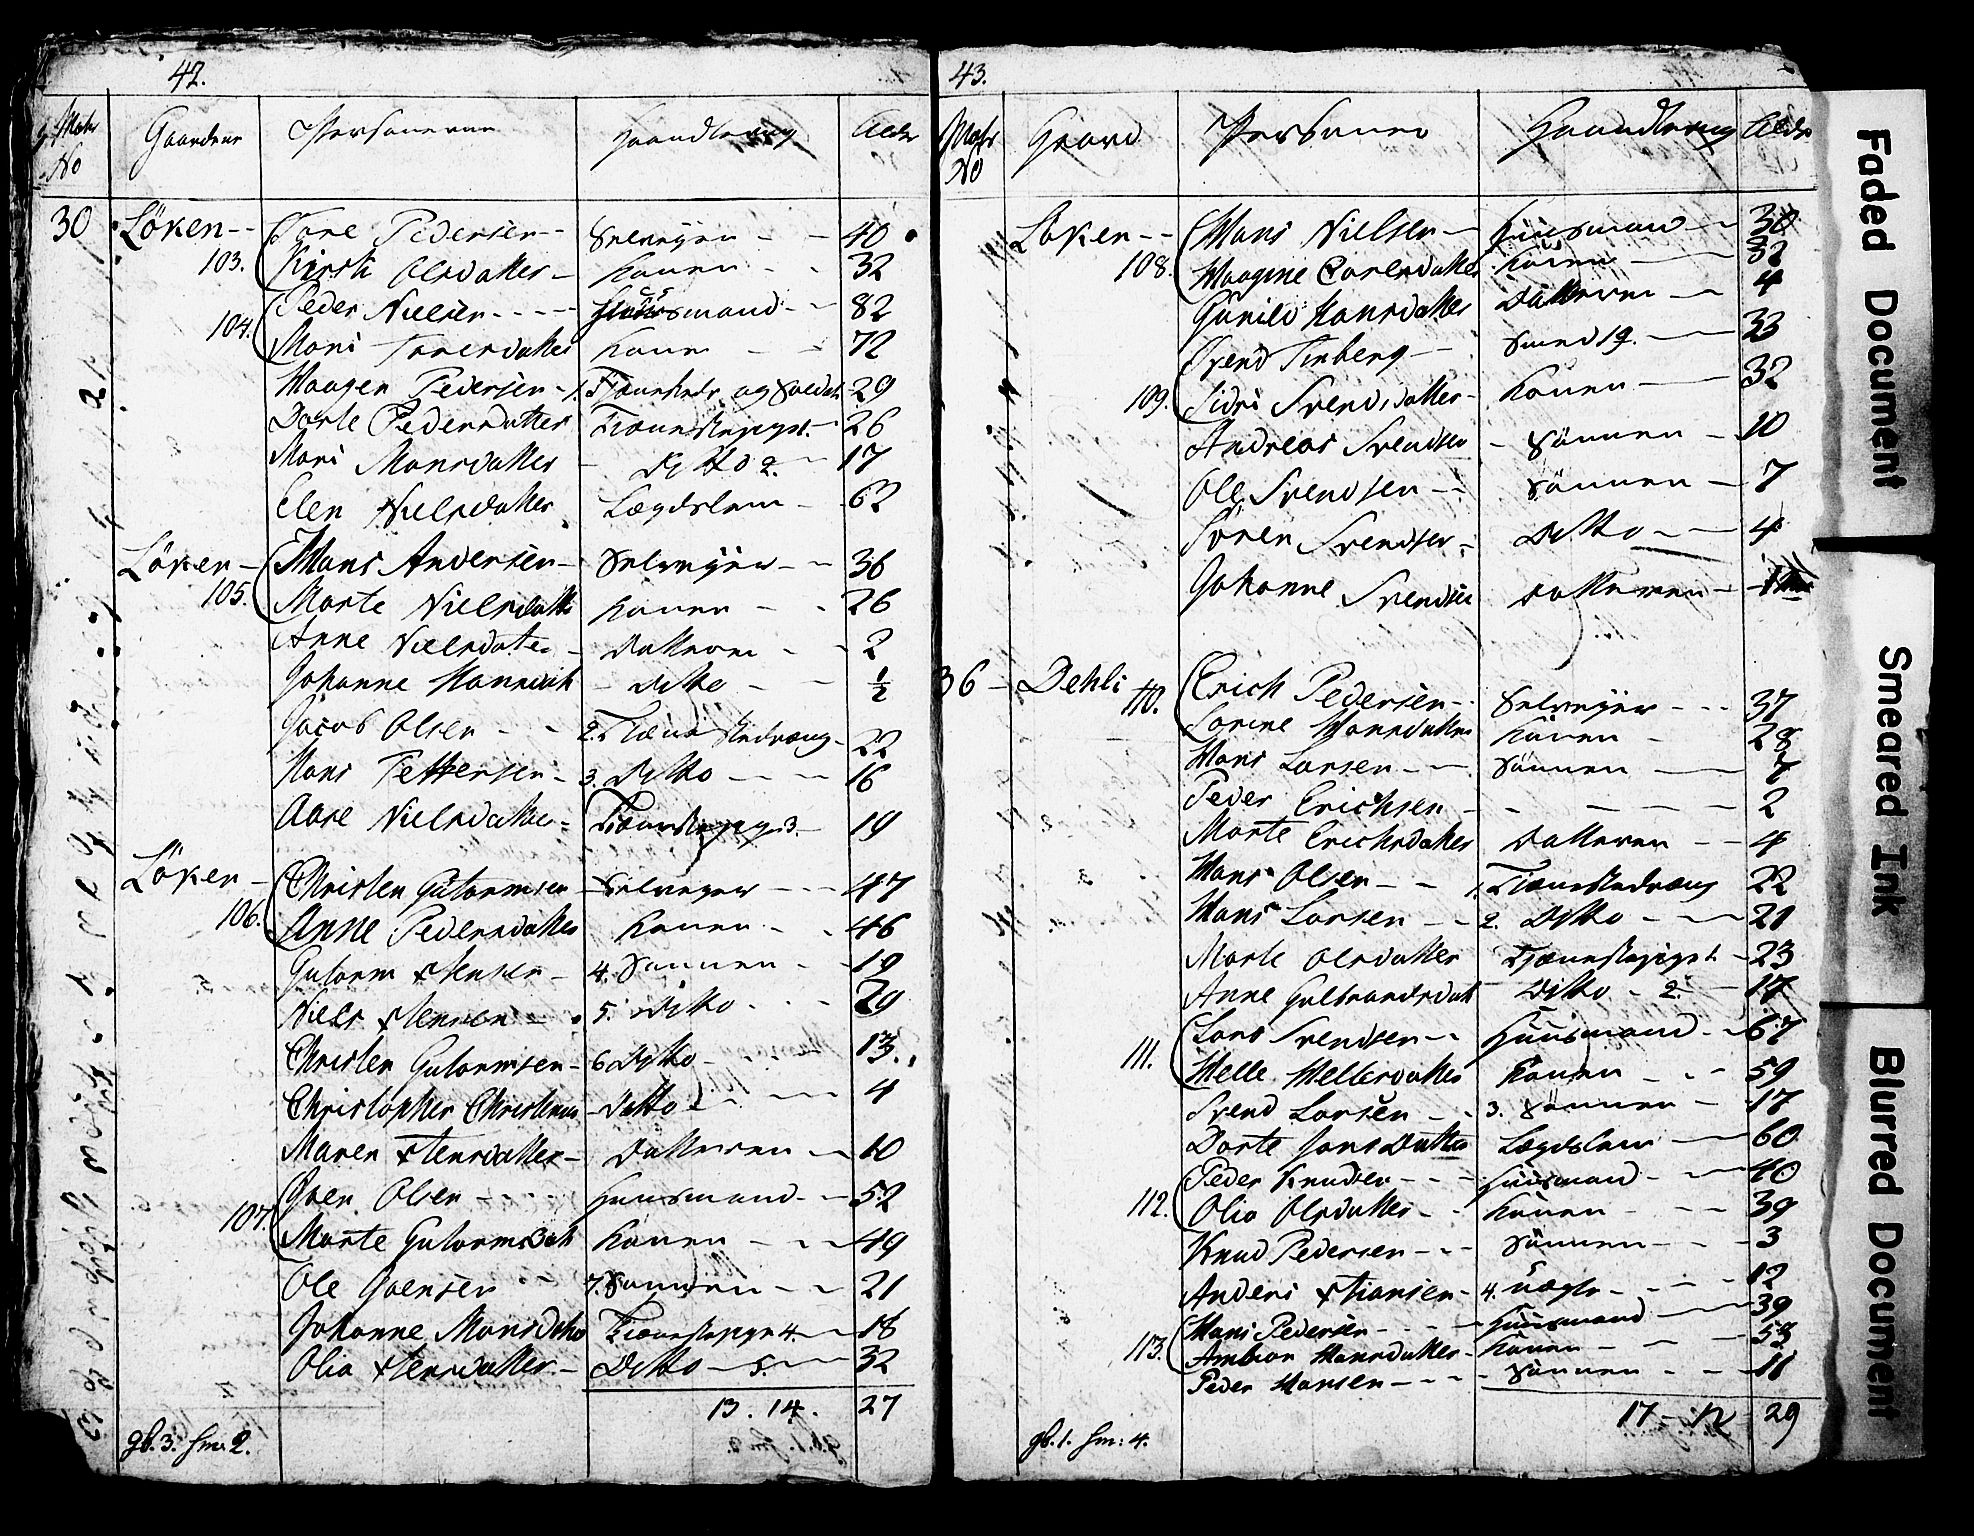 42.
Matr No Gaardene Personerne Haandtering Alder
30 Löken -- Tore Pedersen -- Selveyer - - 40
103. Kirsti Olsdatter - Konen - - 32
Peder Nielsen ---- Huusmand -- 82
104. Mari Toresdatter Konen - 72
Haagen Pedersen - 1. Tienestk: og Soldat 29
Dorte Pedersdatter Tienestepige 1. - 26
Mari Mansdatter - Ditto 2. - 17
Elen Nielsdatter Lægdslem - 62
Löken - Hans Andersen - Selveyer -- 36
105. Marte Nielsdatt Konen - - 26
Anne Nielsdatter - Datteren - - 2
Johanne Hansdatt - Ditto - - 1/2
Jacob Olsen - - 2. Tieneste dreng - 22
Hans Pettersen - 3. Ditto - - - 16
Aase Nielsdatter - Tienestepige 3. - 19
Löken - Christen Gutormsen - Selveyer --- 47
106. Anne Pedersdatter Konen - - 46
Gutorm Xstensen - 4. Sönnen - - 19
Niels Xstensen - 5. Ditto - - - 20
Christen Gutormsen - 6 Ditto - 13.
Christopher Christensen - Ditto - - - 4
Maren Xstensdatter - Datteren - - 10
Goen Olsen Huusmand - - 52
107. Marte Gutormsdatt Konen - - - 49
Ole Goensen 7. Sönnen - - 21
Johanne Mansdatter Tienestepige 4. - 18
Olia Xstensdatter - Ditto - 5. - 32
13. 14. 27
gb. 3. hm: 2.
43.
Matr No Gaard Personer Haandtering Alder
Löken -- Hans Nielsen - Huusmand - 30
108. Haagine Torersdatter Konen - 32
Gunild Hansdatter Datteren - 4
Svend Tinberg - Smed 19. - 33
109. Sidri Svendsdatter - Konen - 32
Andreas Svendsen - Sönnen - 10
Ole Svendsen - - Sönnen - 7
Sören Svendsen - Ditto - - 4
Johanne Svendsd Datteren - 1
36 - Dehli 110. Erich Pedersen - - Selveyer - - - 37
Lorine Hansdatter Konen - 28
Hans Larsen - - - Sönnen - 7
Peder Erichsen - - - - - 2
Marte Erichsdatter Datteren - - 4
Hans Olsen - - 1. Tienestedreng 22
Hans Larsen - - 2. Ditto - - - 21
Marte Olsdatter Tjenestepige 1. - 23
Anne Gulbrandsdatt Ditto - 2. - 17
Lars Svendsen - - Huusmand - - 67
111. Helle Hellesdatter Konen - - - 59
Svend Larsen - - 3. Sönnen - - 17
Dorte Jonsdatter Lægdslem - 60
Peder Knudsen - - - Huusmand - - 40
112. Olia Olsdatter - - Konen - - - 39
Knud Pedersen - - - Sönnen - - - 3
Anders Xstiansen - 4. - - 12
Hans Pedersen - - - Huusmand - 39
113. Ambior Hansdatter - Konen - - - 53
Peder Hansen - - - - Sönnen - - - 11
17 - 12 29
gb. 1. hm: 4.
Faded Document
Smeared Ink
Blurred Document